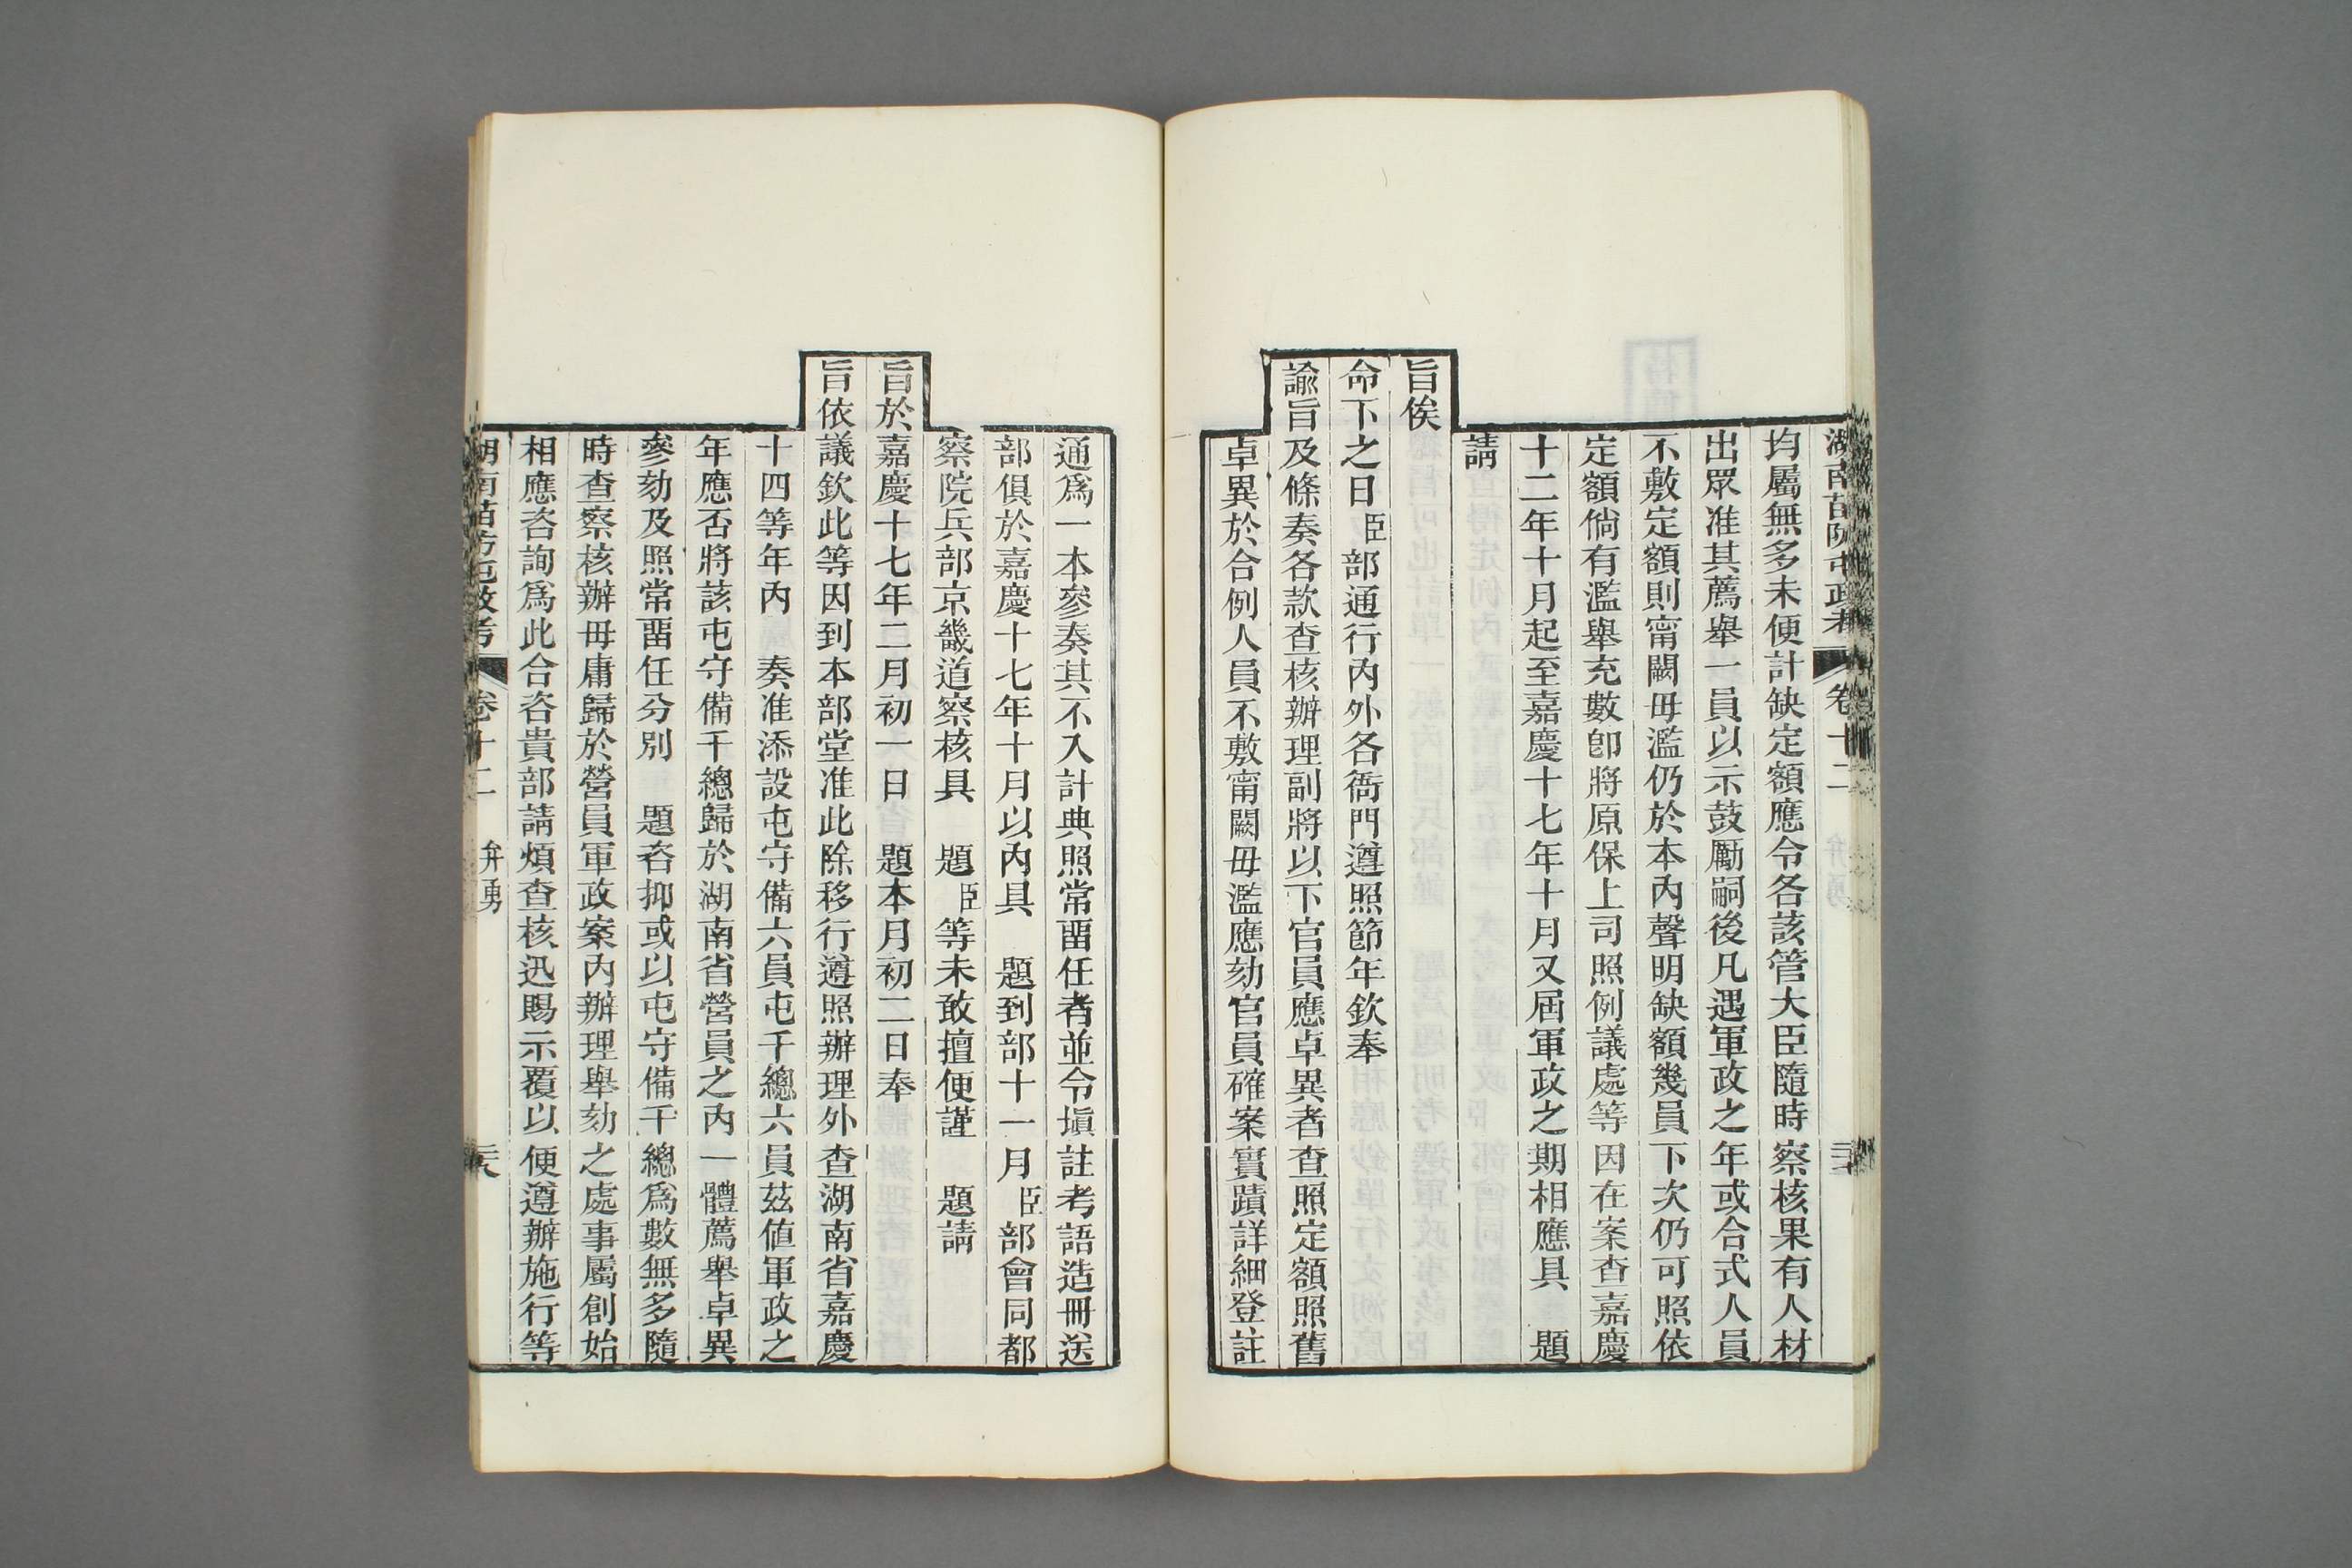 湖南苗防屯政考 卷十二 弁勇
均屬無多未便計缺定額應令各該管大臣隨時察核果有人材
出眾准其薦舉一員以示鼓勵嗣後凡遇軍政之年或合式人員
不敷定額則甯闕毋濫仍於本內聲明缺額幾員下次仍可照依
定額倘有濫舉充數卽將原保上司照例議處等因在案查嘉慶
十二年十月起至嘉慶十七年十月又屆軍政之期相應具 題
請
旨俟
命下之日臣部通行內外各衙門遵照節年欽奉
諭旨及條奏各款查核辦理副將以下官員應卓異者查照定額照舊
卓異於合例人員不敷甯闕毋濫應劾官員確案實蹟詳細登註
通爲一本參奏其不入計典照常畱任者並令塡註考語造冊送
部俱於嘉慶十七年十月以內具 題到部十一月臣部會同都
察院兵部京畿道察核具 題臣等未敢擅便謹 題請
旨於嘉慶十七年二月初一日題本月初二日奉
旨依議欽此等因到本部堂准此除移行遵照辦理外查湖南省嘉慶
十四等年內 奏准添設屯守備六員屯千總六員茲値軍政之
年應否將該屯守備千總歸於湖南省營員之內一體薦舉卓異
參劾及照常畱任分別 題咨抑或以屯守備千總爲數無多隨
時查察核辦毋庸歸於營員軍政案內辦理舉劾之處事屬創始
相應咨詢爲此合咨貴部請煩查核迅賜示覆以便遵辦施行等
湖南苗防屯政考 卷十二 弁勇 二六